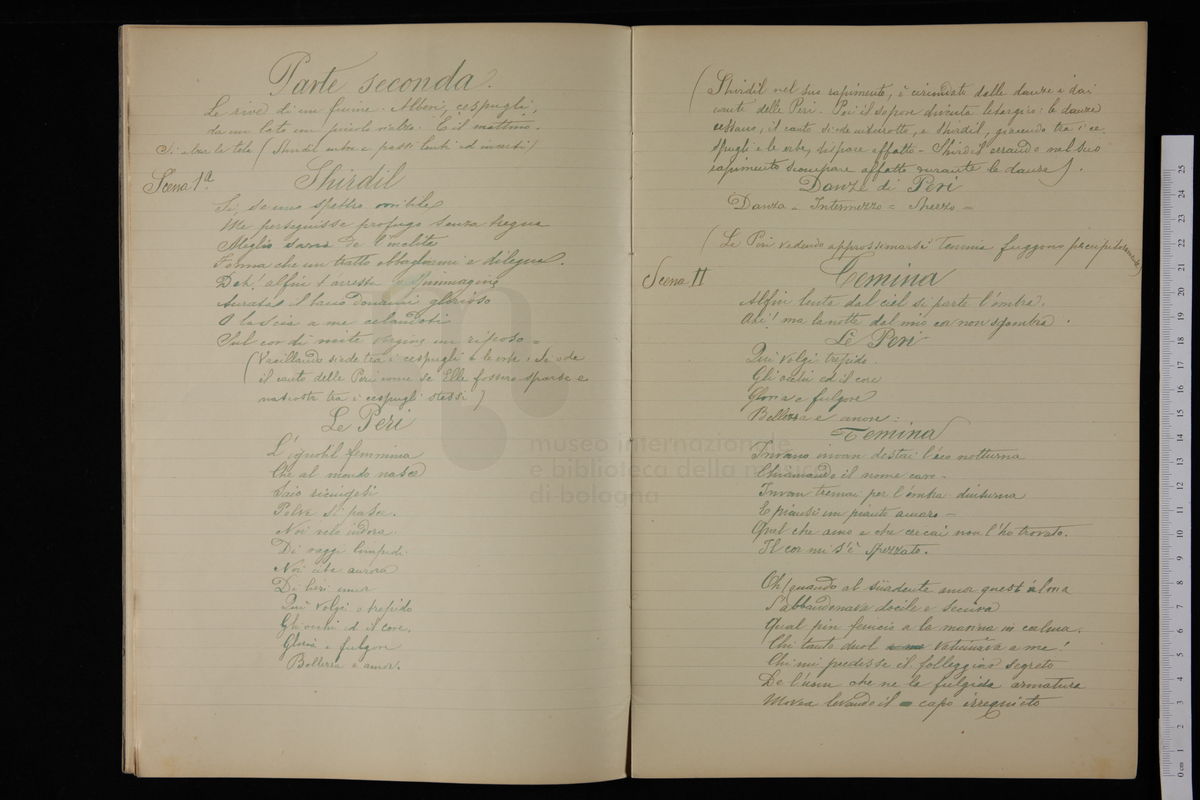 Parte seconda.
Le rive di un fiume. Alberi, cespugli,
da un lato un piccolo rialzo. È il mattino.
Si alza la tela (Shirdil entra a passi lenti ed incerti)
Scena 1ª
Shirdil
Se uno spettro orribile
Me perseguisse profugo senza tregua
Meglio saria de l'inclita
Forma che un tratto abbagliami e dilegua.
Deh! alfin t'arresta immagine
aurata glorioso
O lascia a me
Sul cor di mite vergine un riposo =
(Vacillando siede tra i cespugli e le erbe: Si ode
il canto delle Peri come se Elle fossero sparse e
nascoste tra i cespugli stessi)
Le Peri
L'ignobil femmina
Che al mondo nasce
Polve si pasce.
Noi vela indora
Di raggi limpidi
Noi aurora
Di
Qui volgi o trepido
Gli occhi ed il core,
Gloria e fulgore
Bellezza e amor.
(Shirdil nel suo rapimento, è circondato dalle danze e dai
canti delle Peri. Poi il sopore diventa letargico: le danze
cessano, il canto si ode e Shirdil, giacendo tra i ce-
spugli e le erbe, dispare affatto = Shirdil errando nel suo
rapimento scompare affatto durante le danze).
Danze di Peri
Danza = Intermezzo = Scherzo =
(Le Peri vedendo approssimarsi Temina fuggono precipitosamente)
Scena II
Temina
Alfin lenta dal ciel si parte l'ombra.
Ahi! ma la notte dal mio cor non sgombra.
Le Peri
Qui volgi trepido
Gli occhi ed il core
Gloria e fulgore
Bellezza e amore =
Temina
Invano invan destai l'eco notturna
Chiamando il nome caro =
Invan tremai per l'ombra diuturna
E piansi un pianto amaro =
Quel che amo e che cercai non l'ho trovato.
Il cor mi s'è spezzato.
Oh! quando al süadente amor quest'alma
S'abbandonava docile e secura
Qual pin fenicio a la marina in calma.
Chi tanto duol vaticinava a me!
Chi mi predisse il folleggiar segreto
De l'uom che ne la fulgida armatura
Movea levando il capo irrequieto
museo internazionale
e biblioteca della musica
di bologna
0 cm 1 2 3 4 5 6 7 8 9 10 11 12 13 14 15 16 17 18 19 20 21 22 23 24 25